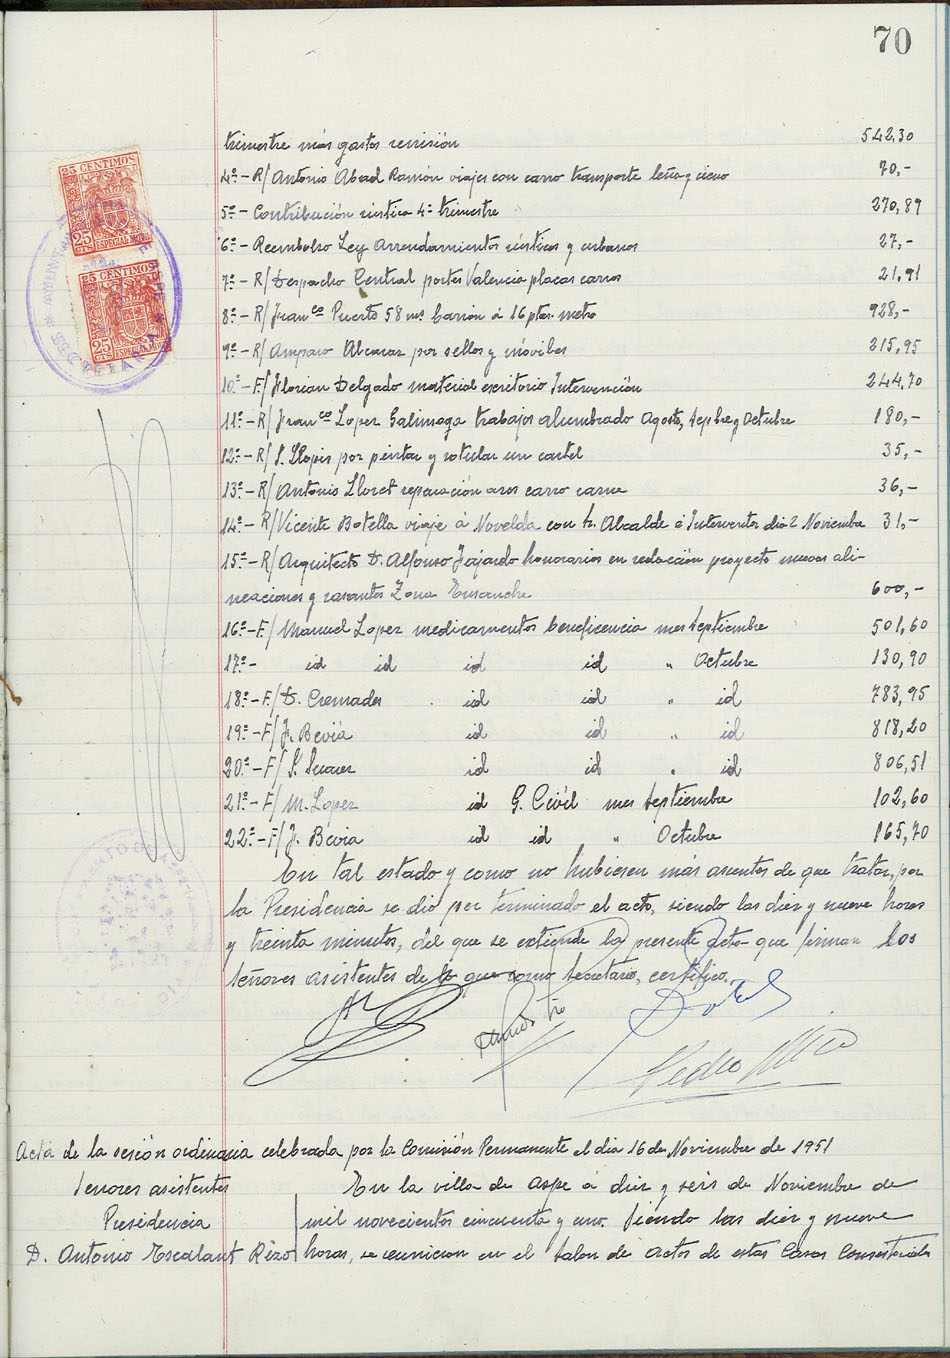 70
trimestre más gastos remisión 542,30
4º- R/ Antonio Abad Ramón viajes con carro transporte leña y cieno 70,-
5º- Contribución rústica 4º trimestre 270,89
6º- Reembolso Ley Arrendamientos rústicos y urbanos 27,-
7º- R/ Despacho Central portes Valencia placas carros 21,91
8º- R/ Franco Puerto 58 ms. barión á 16 ptas. metro 928,-
9º- R/ Amparo Alcaraz por sellos y móviles 215,95
10º- F/ Florian Delgado material escritorio Intervención 244,70
11º- R/ Franco Lopez Galinsoga trabajos alumbrado Agosto, Sepbre y Octubre 180,-
12º- R/ S. Llopis por pintar y rotular un cartel 35,-
13º- R/ Antonio Lloret reparación carro carne 36,-
14º- R/ Vicente Botella viaje á Novelda con Sr. Alcalde é Interventor dia 2 Noviembre 31,-
15º- R/ Arquitecto D. Alfonso Fajardo honorarios en redacción proyecto nuevas ali-
neaciones y rasantes Zona Ensanche 600,-
16º- F/ Manuel Lopez medicamentos beneficencia mes Septiembre 501,60
17º- id id id id " Octubre 130,90
18º- F/ D. Cremades id id " id 783,95
19º- F/ J. Beviá id id " id 818,20
20º- F/ id id " id 806,51
21º- F/ M. Lopez id G. Civil mes Septiembre 102,60
22º- F/ J. Bevia id id " Octubre 165,70
En tal estado y como no hubiesen más asuntos de que tratar, por
la Presidencia se dió por terminado el acto, siendo las diez y nueve horas
y treinta minutos, del que se extiende la presente acta que firman los
señores asistentes de lo que como Secretario, certifico.
Pedro
Acta de la sesión ordinaria celebrada por la Comisión Permanente el dia 16 de Noviembre de 1951
Señores asistentes
Presidencia
D. Antonio Escalant Rizo
En la villa de Aspe á diez y seis de Noviembre de
mil novecientos cincuenta y uno. Siendo las diez y nueve
horas, se reunieron en el Salon de actos de estas Casas Consistoriales
25 CENTIMOS
25 CTS ESPECIAL MOVIL
25 CENTIMOS
25 CTS ESPECIAL MOVIL